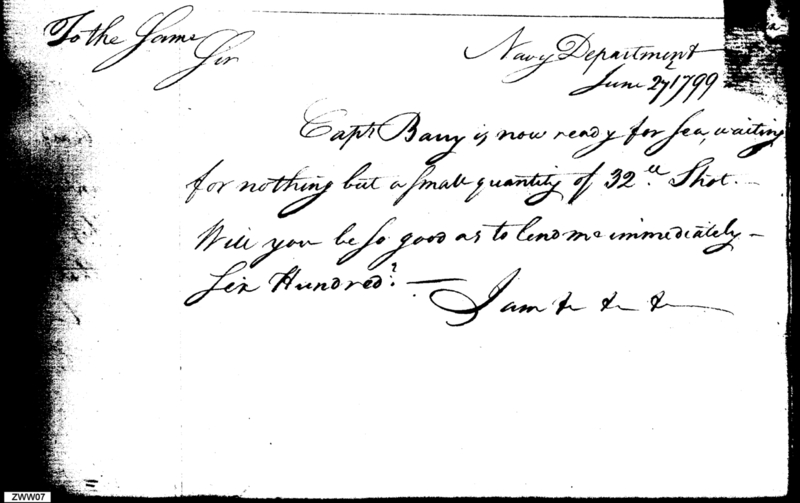 To the Same
Navy Department
Sir
June 27 1799
Capt Barry is now ready for Sea, waiting
for nothing but a small quantity of 32 lb. Shot. –
Will you be so good as to lend me immediately –
Six Hundred? —
I am &c &c &c
ZWW07